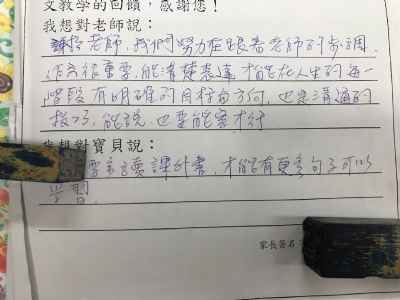 文教學的回饋,感謝您!
我想對老師說:
謝谢老師,我們努力在跟著老師的步調,
作文很重要,能清楚表達才能在人生的每一
階段有明確的目標与方向,也是溝通的
技巧,能說,也要能寫才行
我想對寶貝說:
要多讀課外書,才能有更多句子可以
學習.
家長簽名